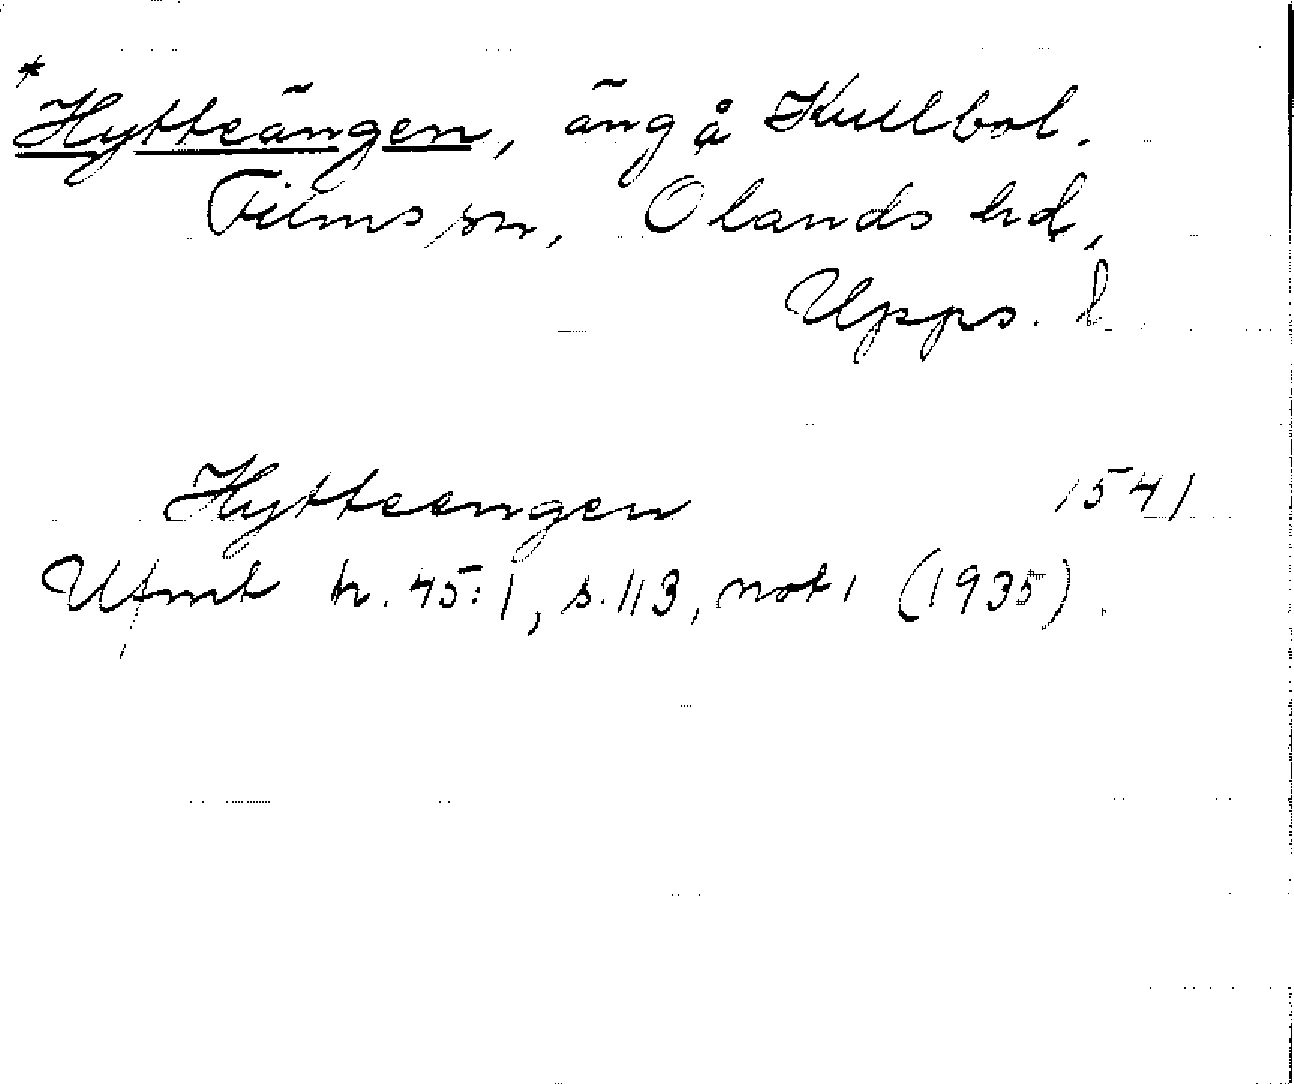 *Hytteängen, äng å Kullbol.
Films sn, Olands hd,
Upps. l
Hytteengen 1541
Ufmt h. 45:1, s. 113, not 1 (1935).